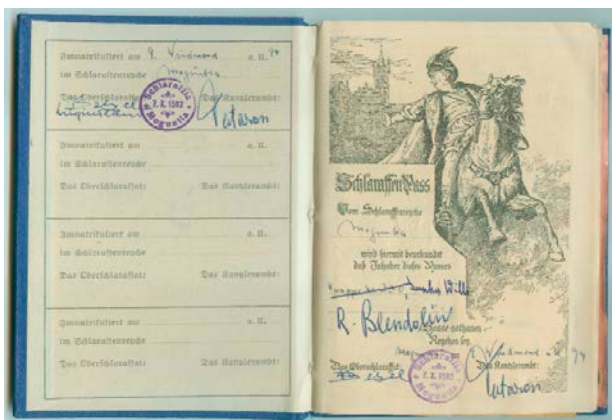 Immatrikuliert am 9. Windmond a. U. 94
im Schlaraffenreyche Moguntia
Das Oberschlaraffat: Das Kanzlerambt:
Schlaraffia
7. X. 1582
Moguntia
Immatrikuliert am a. U.
im Schlaraffenreyche
Das Oberschlaraffat: Das Kanzlerambt:
Immatrikuliert am a. U.
im Schlaraffenreyche
Das Oberschlaraffat: Das Kanzlerambt:
Immatrikuliert am a. U.
im Schlaraffenreyche
Das Oberschlaraffat: Das Kanzlerambt:
Schlaraffen Pass
Vom Schlaraffenreyche
Moguntia
wird hiermit beurkundet
daß Inhaber dieses
Junker Willi
R. Blendolin
Sasse gethanen
Reyches sey.
Windmond a. U. 94
Das Oberschlaraffat: Das Kanzlerambt:
Schlaraffia
7. X. 1582
Moguntia